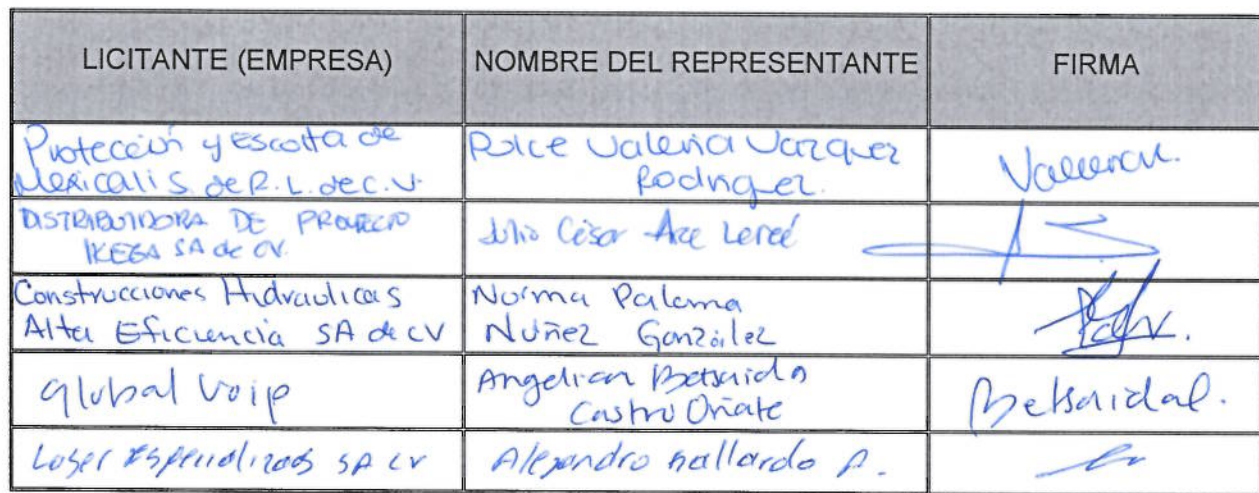 LICITANTE (EMPRESA) NOMBRE DEL REPRESENTANTE FIRMA
Protección y Escolta de
Mexicali S. de R.L. de C.V.
Dulce Valeria Vazquez
Rodriguez.
DISTRIBUIDORA DE PROYECTO
SA de CV.
Julio César
Construcciones Hidraulicas
Alta Eficiencia SA de CV
Norma Paloma
Nuñez González
Global Voip
Angelica Betsaida
Castro Oñate
Betsaida
SA CV
Alejandro Gallardo A.